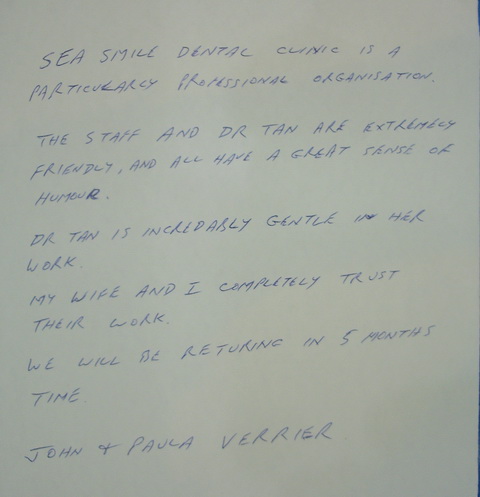 SEA SMILE DENTAL CLINIC IS A
PARTICULARLY PROFESSIONAL ORGANISATION.
THE STAFF AND DR TAN ARE EXTREMELY
FRIENDLY, AND ALL HAVE A GREAT SENSE OF
HUMOUR.
DR TAN IS INCREDABLY GENTLE IN HER
WORK.
MY WIFE AND I COMPLETELY TRUST
THEIR WORK.
WE WILL BE RETURING IN 5 MONTHS
TIME.
JOHN + PAULA VERRIER